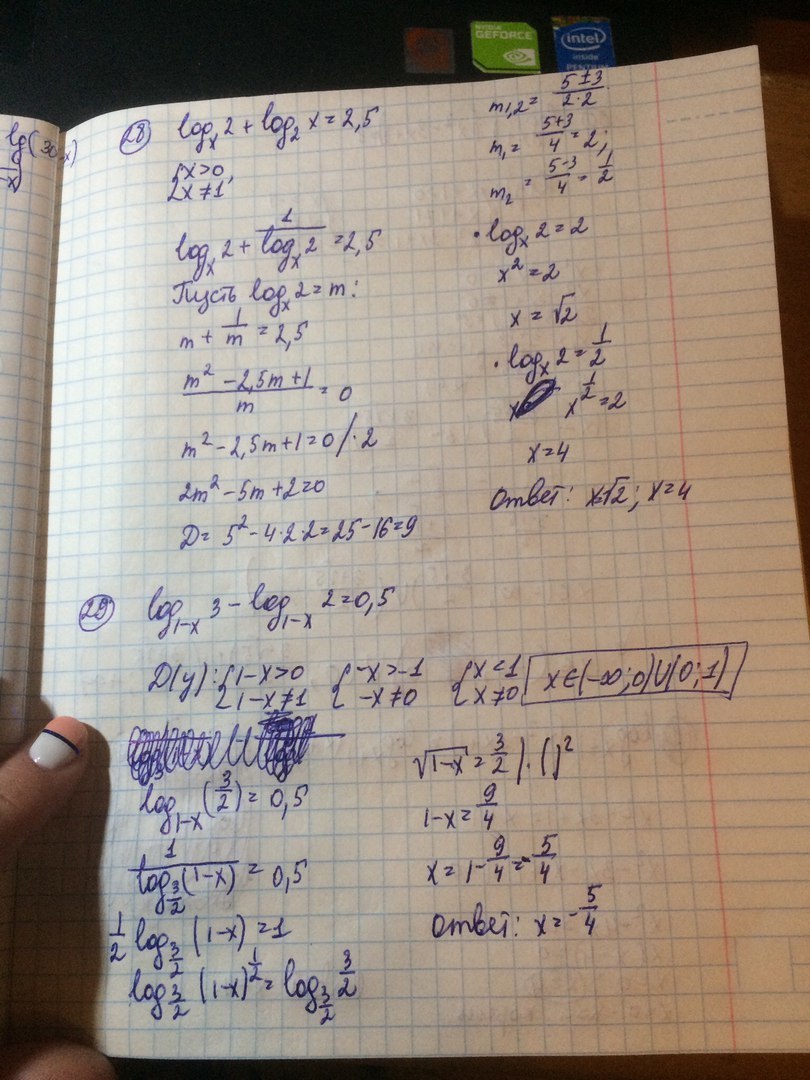 NVIDIA
GEFORCE
intel
inside
PENTIUM
lg(30-x)
28) log_x 2 + log_2 x = 2,5
{x>0,
{x≠1
log_x 2 + 1/(log_x 2) = 2,5
Пусть log_x 2 = m:
m + 1/m = 2,5
(m² - 2,5m + 1)/m = 0
m² - 2,5m + 1 = 0 /·2
2m² - 5m + 2 = 0
D = 5² - 4·2·2 = 25 - 16 = 9
m1,2 = (5±3)/(2·2)
m₁ = (5+3)/4 = 2;
m₂ = (5-3)/4 = 1/2
• log_x 2 = 2
x² = 2
x = √2
• log_x 2 = 1/2
x^(1/2) = 2
x = 4
Ответ: x=√2; x=4
29) log_(1-x) 3 - log_(1-x) 2 = 0,5
D(y): {1-x>0 {-x>-1 {x<1
{1-x≠1 {-x≠0 {x≠0
x∈(-∞;0)U(0;1)
log_(1-x) (3/2) = 0,5
1/(log_(3/2) (1-x)) = 0,5
1/2 log_(3/2) (1-x) = 1
log_(3/2) (1-x)^(1/2) = log_(3/2) 3/2
√(1-x) = 3/2 |·( )²
1-x = 9/4
x = 1 - 9/4 = -5/4
Ответ: x = -5/4